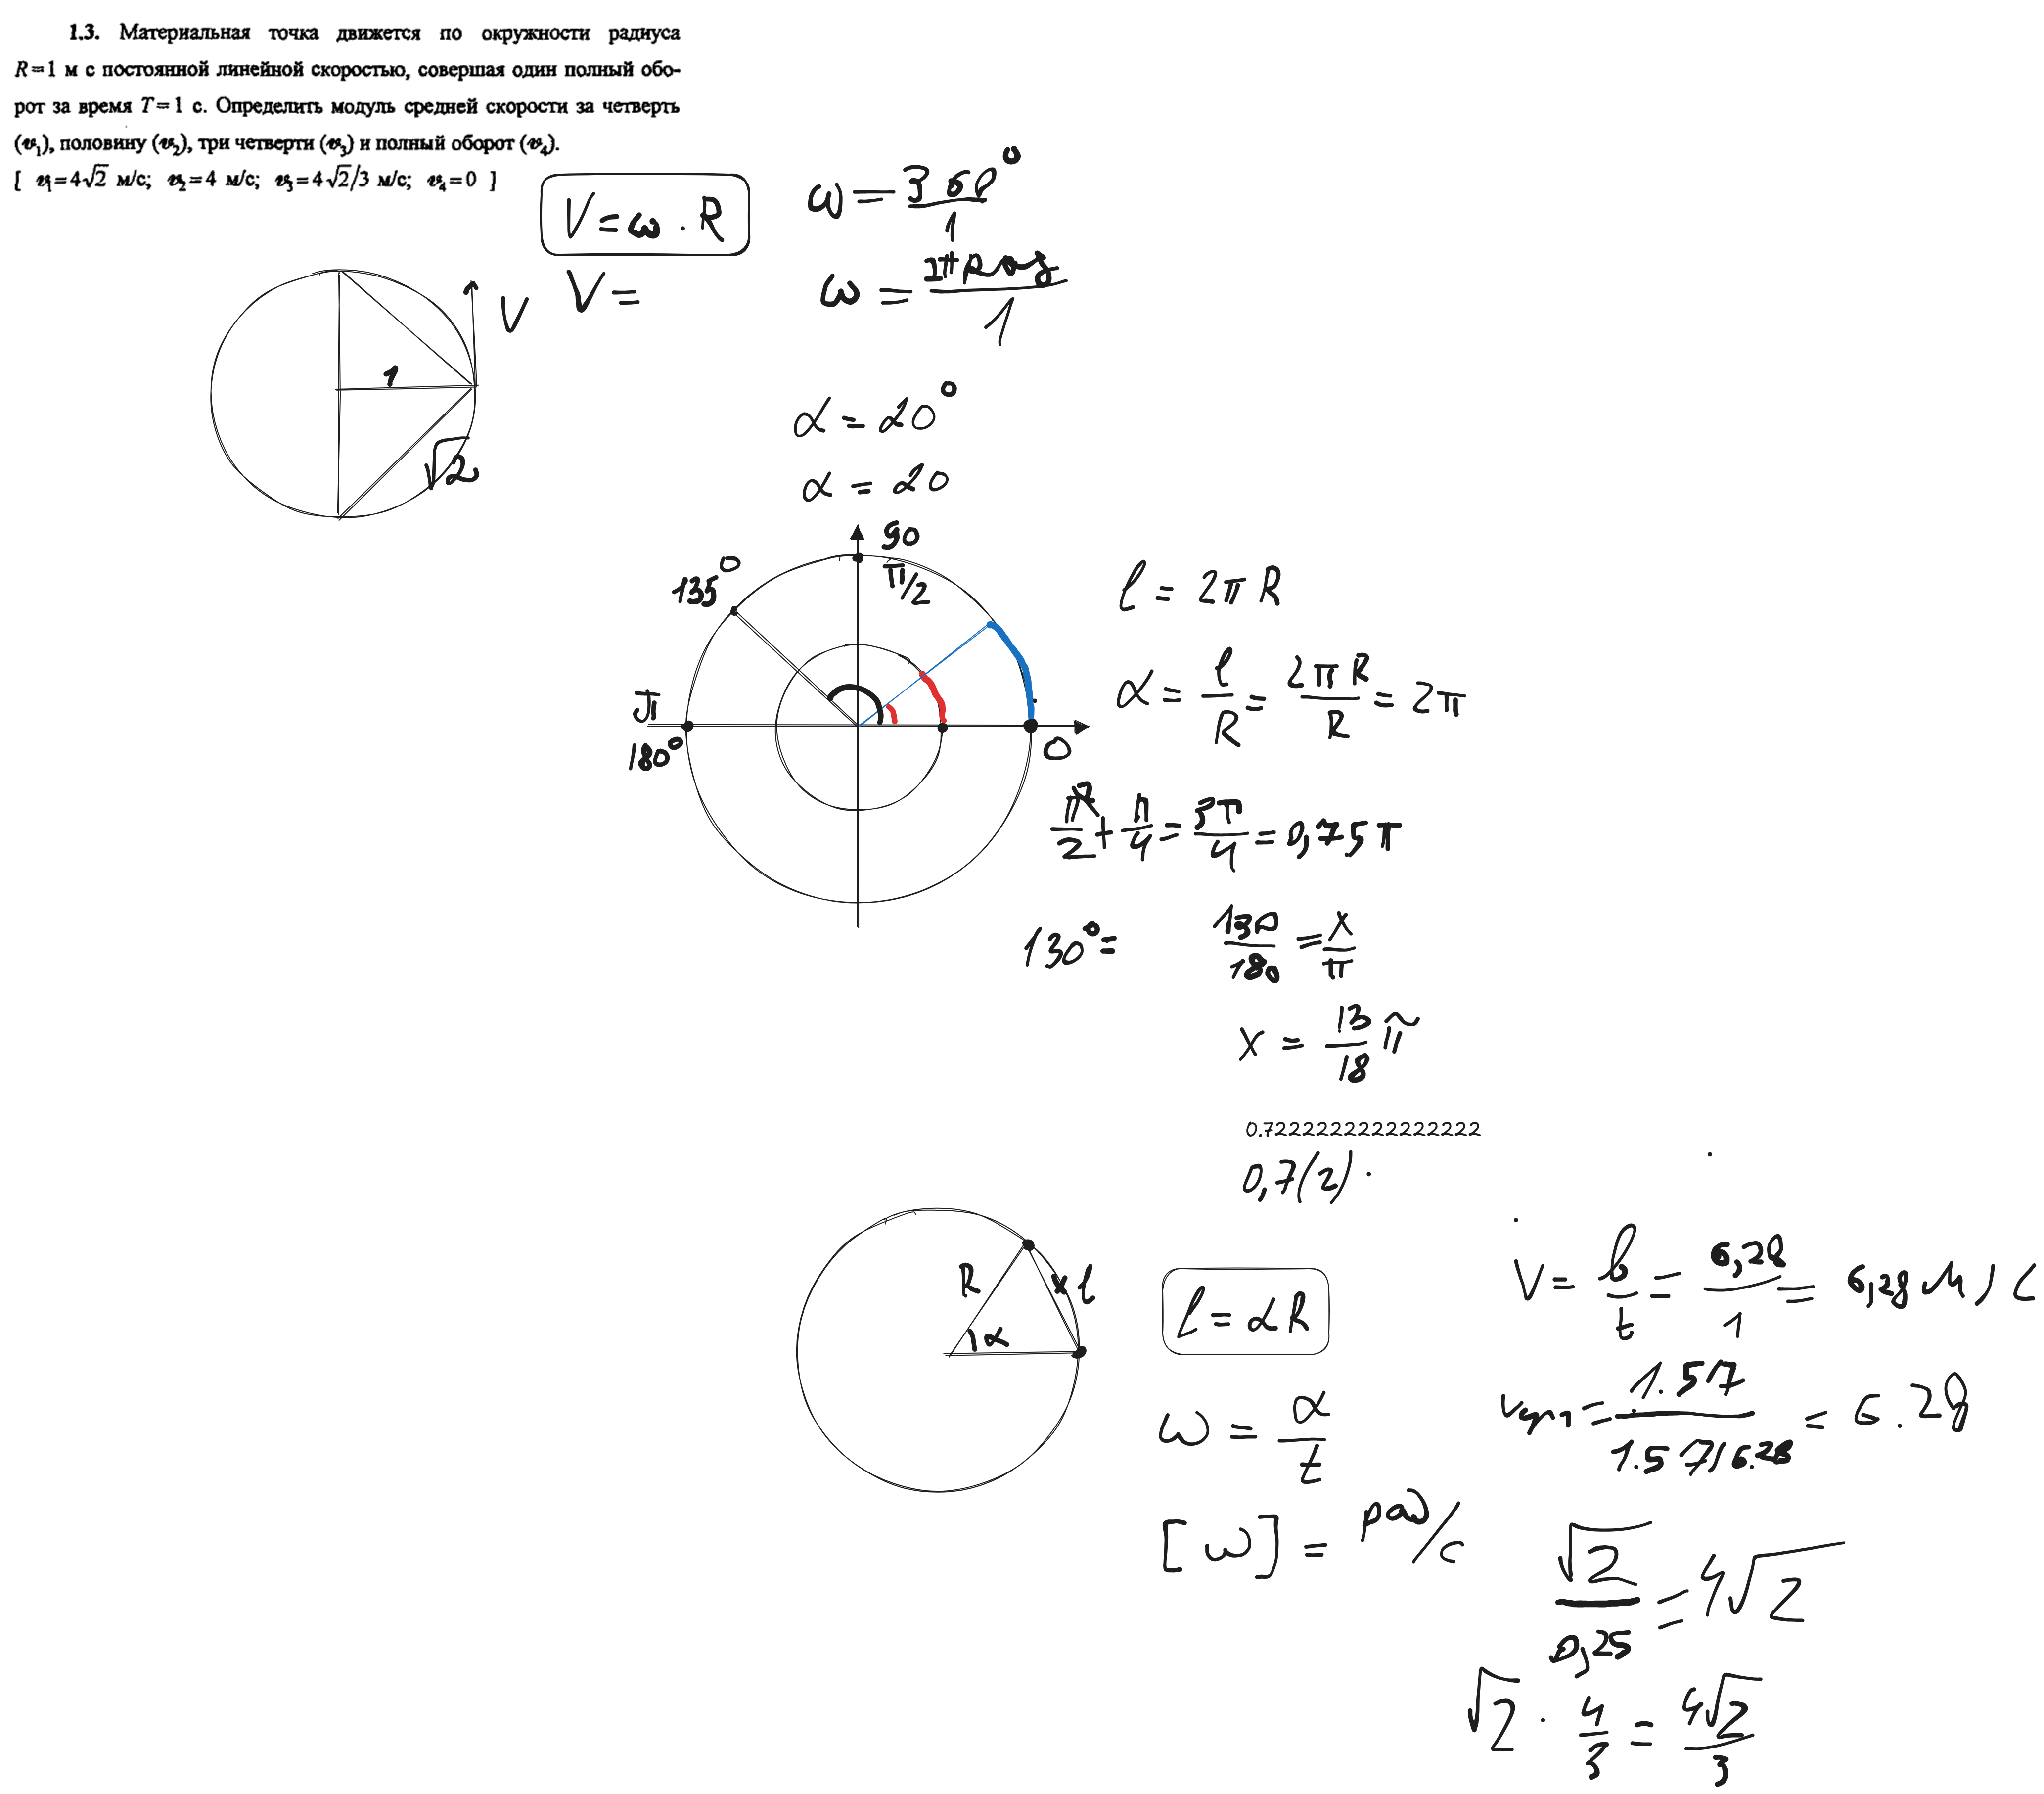 1.3. Материальная точка движется по окружности радиуса
R = 1 м с постоянной линейной скоростью, совершая один полный обо-
рот за время T = 1 с. Определить модуль средней скорости за четверть
(v₁), половину (v₂), три четверти (v₃) и полный оборот (v₄).
[ v₁ = 4√2 м/с; v₂ = 4 м/с; v₃ = 4√2/3 м/с; v₄ = 0 ]
V = ω · R
V =
ω = 360°/1
ω = 2π рад/1
1
V
√2
α = 20°
α = 20
90
π/2
135°
π
180°
0
l = 2πR
α = l/R = 2πR/R = 2π
π/2 + π/4 = 3π/4 = 0,75π
130° =
130/180 = x/π
x = 13/18 π
0.7222222222222222
0,7(2)
R
α
l
l = αR
ω = α/t
[ω] = рад/с
V = l/t = 6,28/1 = 6,28 м/с
Vср1 = 1.57/1.57/6.28 = 6.28
√2/0,25 = 4√2
√2 · 4/3 = 4√2/3